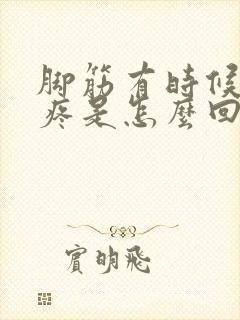 脚筋有時候
疼是怎麼回
賓明飛